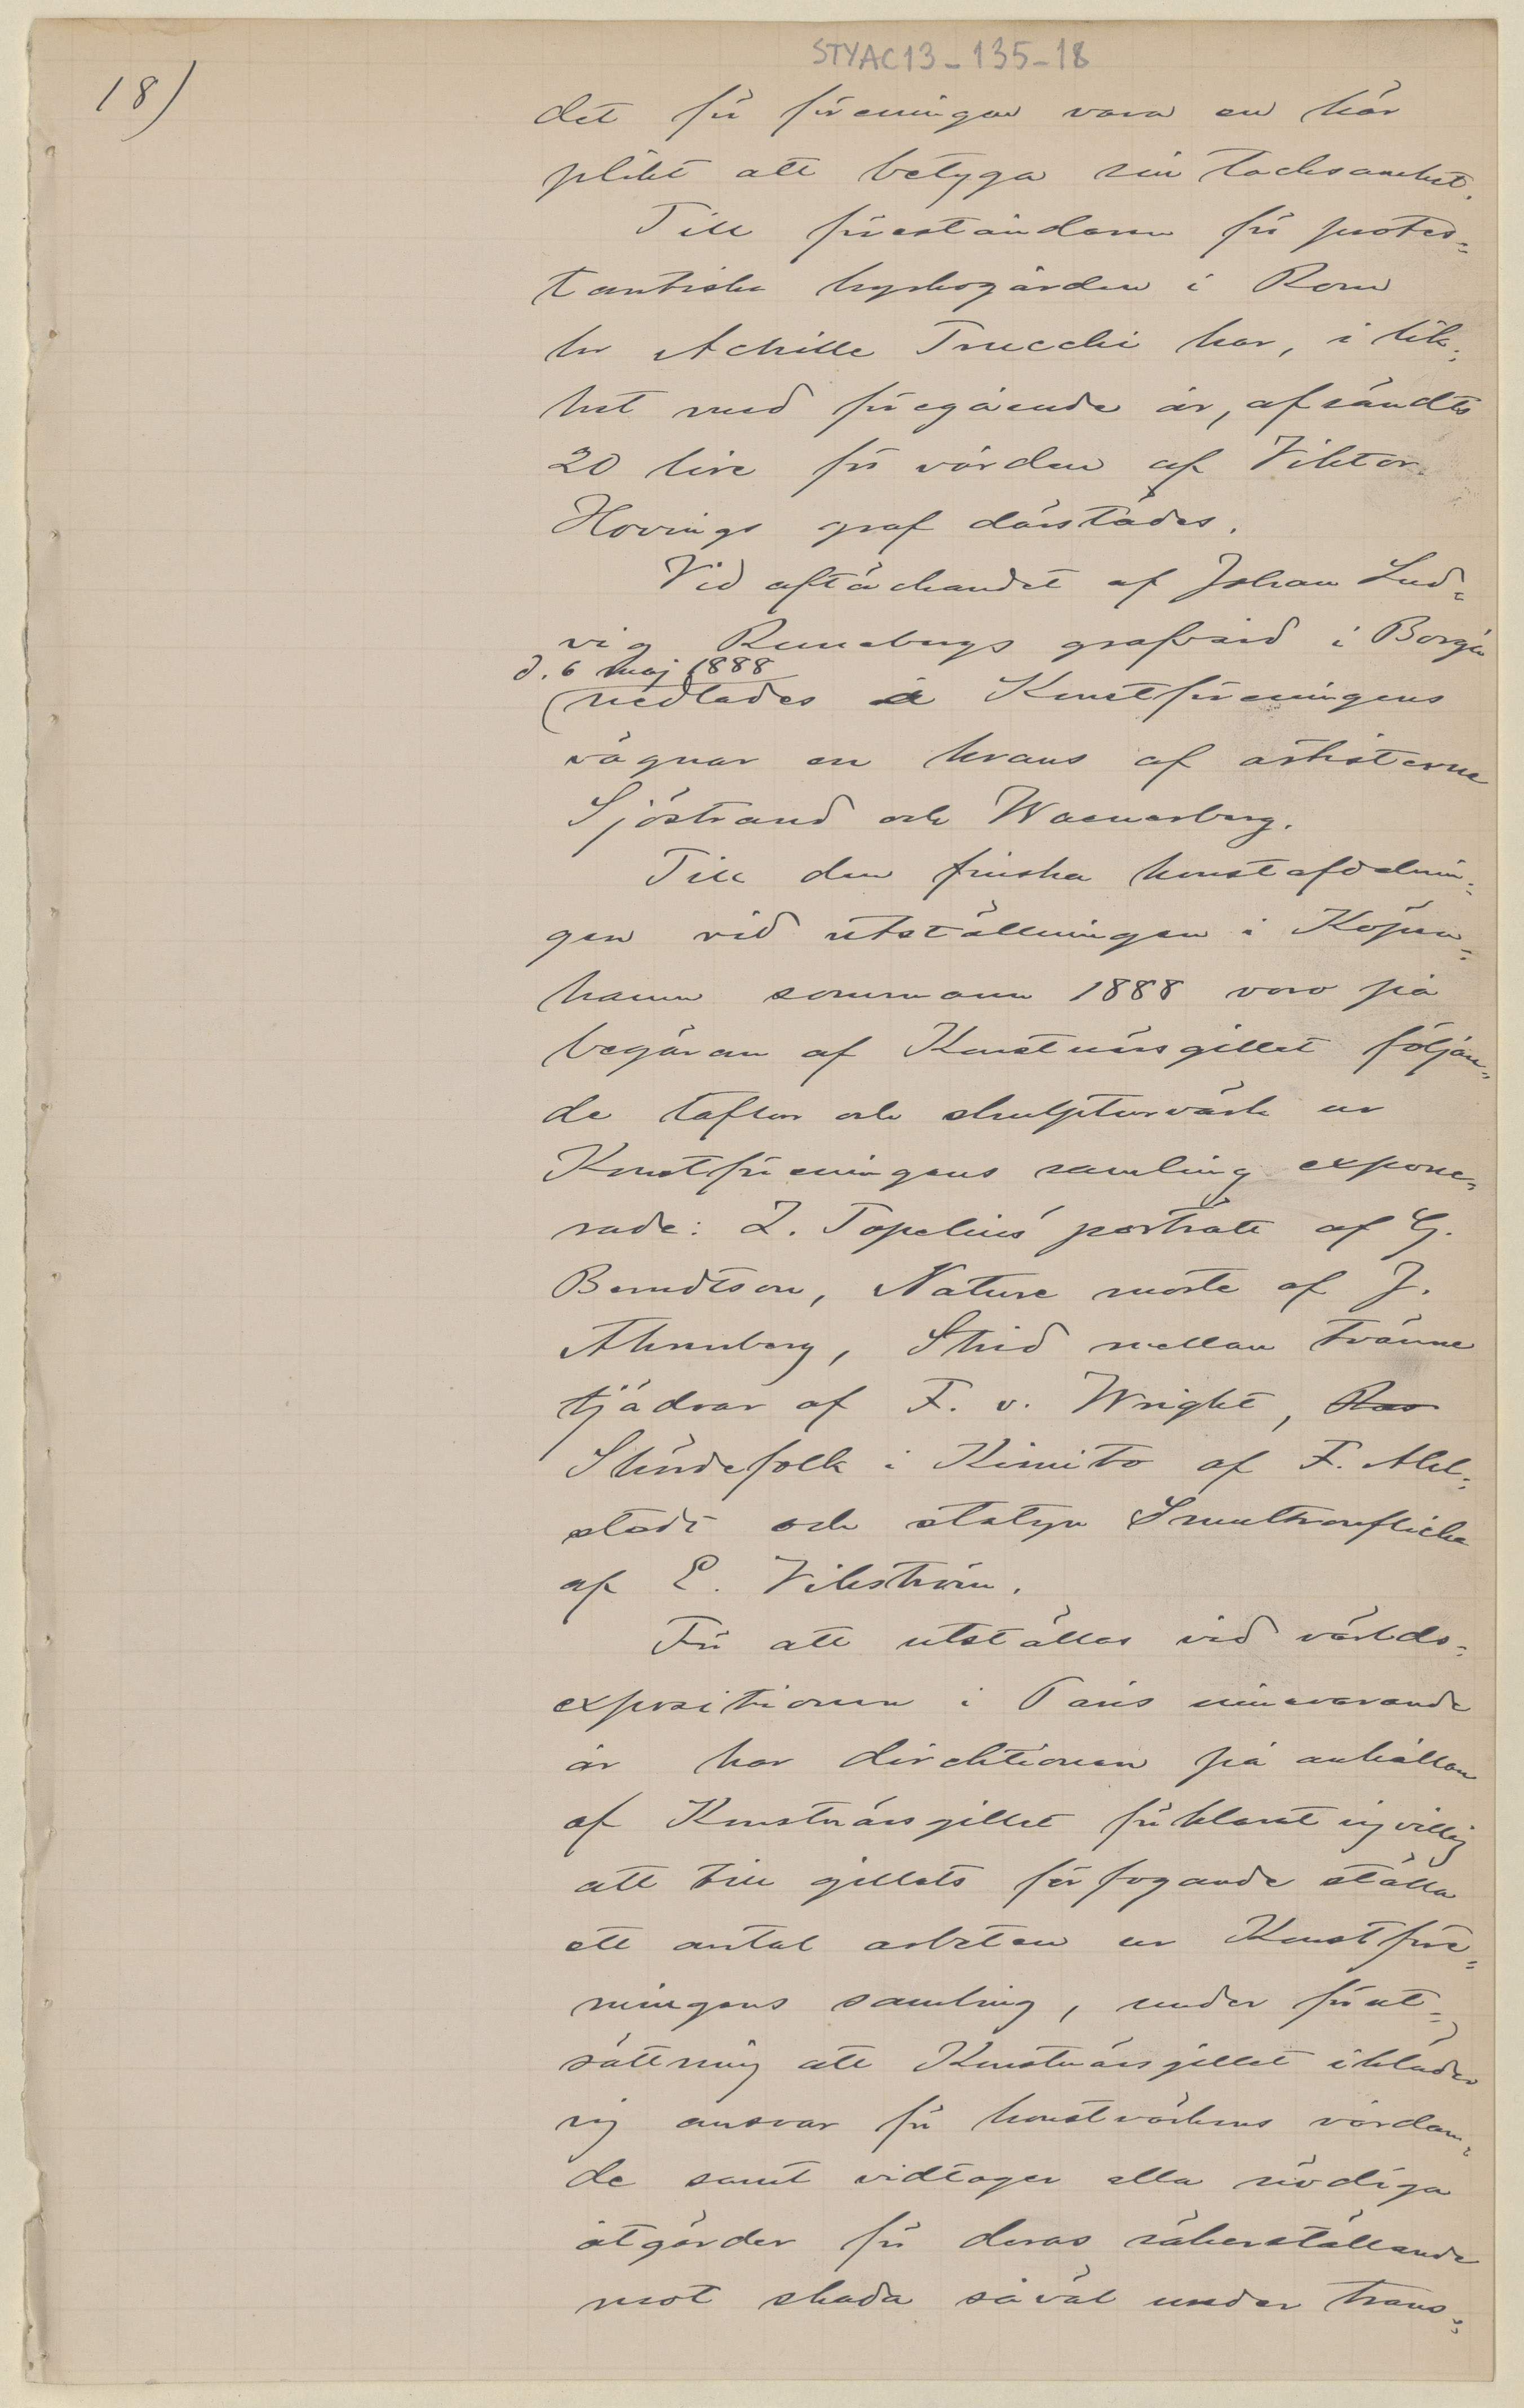 STYAC13-135-18
18)
det för föreningen vara en kär
plikt att betyga sin tacksamhet.
Till föreståndaren för protes=
tantiska kyrkogården i Rom
hr Achille Trucchi har, i lik=
het med föregående år, afsändts
20 lire för vården af Viktor
Hovings graf därstädes.
Vid aftäckandet af Johan Lud=
vig Runebergs grafvård i Borgå
d. 6 maj 1888
nedlades å Konstföreningens
vägnar en krans af artisterne
Sjöstrand och Waenerberg.
Till den finska konstafdelnin=
gen vid utställningen i Köpen=
hamn sommaren 1888 voro på
begäran af Konstnärsgillet följan=
de taflor och skulpturvärk ur
Konstföreningens samling expone=
rade: Z. Topelius' porträtt af G.
Berndtson, Nature morte af J.
Ahrenberg, Strid mellan tvänne
tjädrar af F. v. Wright,
Skördefolk i Kimito af F. Ahl=
stedt och statyn Smultronflicka
af E. Vikström.
För att utställas vid världs=
expositionen i Paris innevarande
år har direktionen på anhållan
af Konstnärsgillet förklarat sig villig
att till gillets förfogande ställa
ett antal arbeten ur Konstföre=
ningens samling, under förut=
sättning att Konstnärsgillet ikläder
sig ansvar för konstvärkens vårdan=
de samt vidtager alla nödiga
åtgärder för deras säkerställande
mot skada såväl under trans=